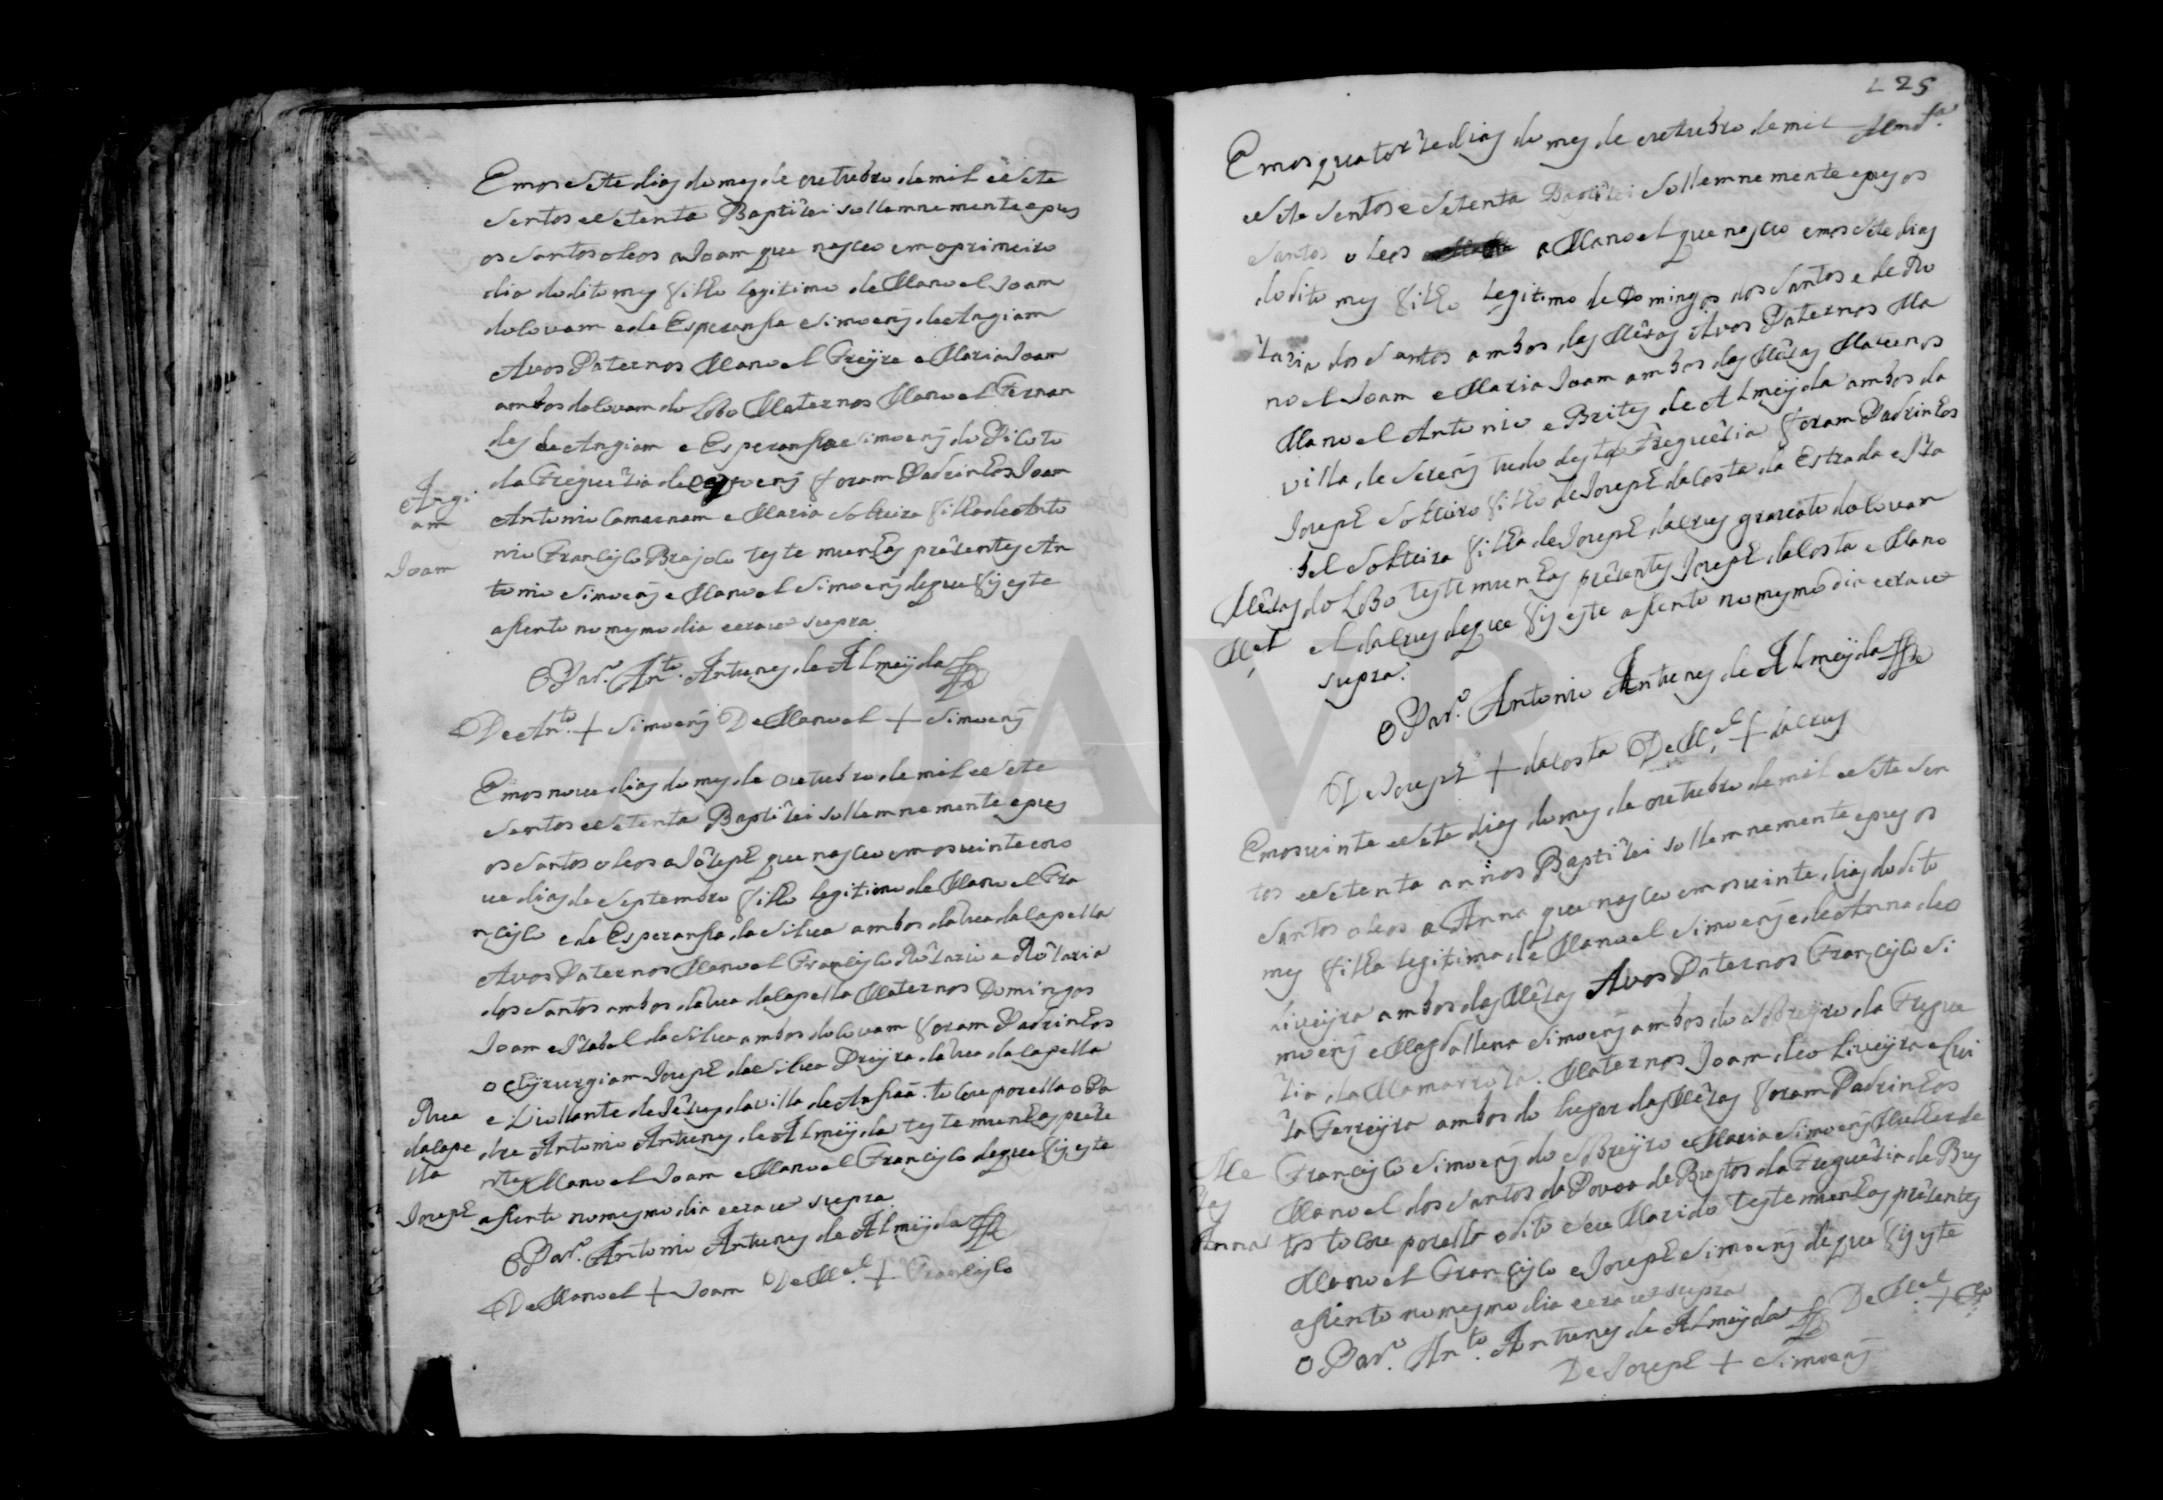 Emos sete dias do mes de outubro de mil e sete
sentos e setenta Baptizei sollemnemente e pus
os santos oleos a Joam que nasceo em o primeiro
dia do dito mes filho legitimo de Manoel Joam
do Covam e de Esperansa Simoens de Angiam
Avos Paternos Manoel Freyre e Maria Joam
ambos do Covam do Lobo Maternos Manoel Fernan
des de Angiam e Esperansa Simoens do
da Freguezia de foram Padrinhos Joam
Antonio Camarnam e Maria Solteira filha de Anto
nio Francisco Brajolo testemunhas prezentes An
tonio Simoens e Manoel Simoens de que fis este
asento no mesmo dia e era ut supra
Angi
am
Joam
O Par.º Ant.º Antunes de Almeyda
De Ant.º + Simoens De Manoel + Simoens
Emos nove dias do mes de outubro de mil e sete
sentos e setenta Baptizei sollemnemente e pus
os santos oleos a Jozeph que nasceo em os vinte e no
ve dias de Septembro filho legitimo de Manoel Fra
ncisco e de Esperansa da Silva ambos da Rua da Capella
Avos Paternos Manoel Francisco Rozario e Rozaria
dos Santos ambos da Rua da Capella Maternos Domingos
Joam e Izabel da Silva ambos do Covam foram Padrinhos
o Cyrurgiam Joseph da Silva Preyra da Rua da Capella
e Violante de Jezus da villa de tocou por ella o Pa
dre Antonio Antunes de Almeyda testemunhas preze
ntes Manoel Joam e Manoel Francisco de que fis este
asento no mesmo dia e era ut supra
Rua
da Cape
lla
Joseph
O Par.º Antonio Antunes de Almeyda
De Manoel + Joam De M.el + Francisco
225
Emos quatorze dias do mes de outubro de mil
e sete sentos e setenta Baptizei sollemnemente e pus os
santos oleos a Manoel que nasceo em os sete dias
do dito mes filho legitimo de Domingos dos Santos e de Ro
zaria dos Santos ambos das Mezas Avos Paternos Ma
noel Joam e Maria Joam ambos das Mezas Maternos
Manoel Antonio e Brites de Almeyda ambos da
villa de Serem tudo desta Freguezia foram Padrinhos
Joseph Solteiro filho de Joseph da Costa da Estrada e Iza
bel Solteira filha de Joseph da Crus do Covam
do Lobo testemunhas prezentes Joseph da Costa e Mano
el da Crus de que fis este asento no mesmo dia e era ut
supra.
Mezas
M.el
O Par.º Antonio Antunes de Almeyda
De Joseph + da Costa De M.el + da Crus
Emos vinte e sete dias do mes de outubro de mil e sete sen
tos e setenta annos Baptizei sollemnemente e pus os
santos oleos a Anna que nasceo em os vinte dias do dito
mes filha legitima de Manoel Simoens e de Anna de O
liveyra ambos das Mezas Avos Paternos Francisco Si
moens e Magdallena Simoens ambos do Sobreyro da Fregue
zia da Mamarroza. Maternos Joam de Oliveyra e Lui
za Ferreyra ambos do lugar das Mezas foram Padrinhos
Francisco Simoens do Sobreyro e Maria Simoens Mulher de
Manoel dos Santos da Povoa de Bustos da Freguezia de Bus
tos tocou por ella o dito seu Marido testemunhas prezentes
Manoel Francisco e Joseph Simoens de que fis este
asento no mesmo dia e era ut supra
Me
zas
Anna
O Par.º Ant.º Antunes de Almeyda De M.el + Fr.co
De Joseph + Simoens
ADAVR